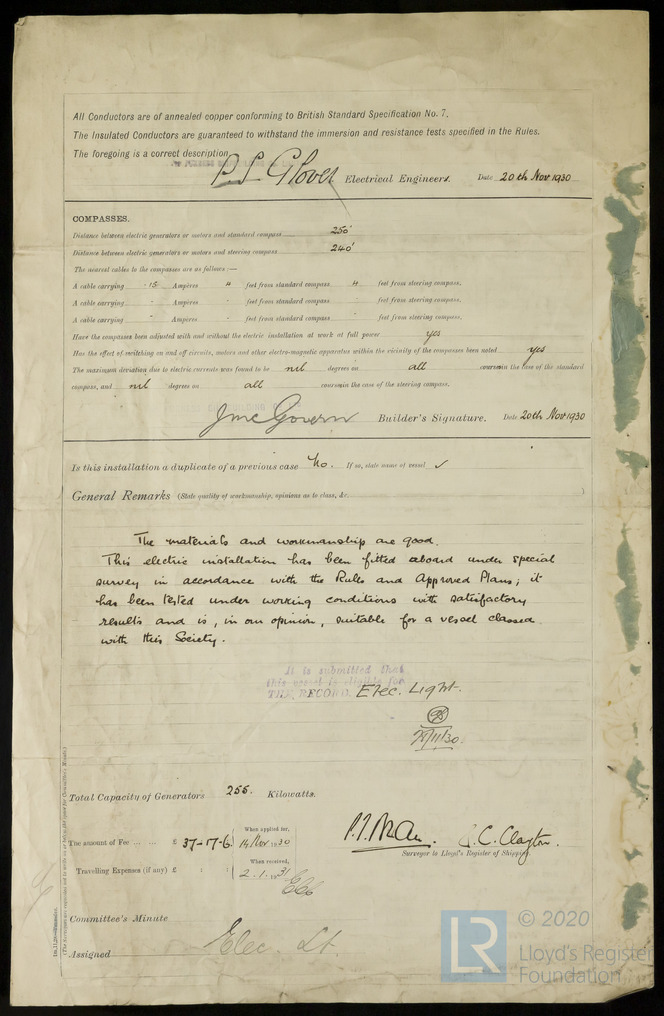 All Conductors are of annealed copper conforming to British Standard Specification No. 7.
The Insulated Conductors are guaranteed to withstand the immersion and resistance tests specified in the Rules.
The foregoing is a correct description.
P. L. Glover Electrical Engineers. Date 20th Nov 1930
COMPASSES.
Distance between electric generators or motors and standard compass 250'
Distance between electric generators or motors and steering compass 240'
The nearest cables to the compasses are as follows :—
A cable carrying ·15 Ampères 4 feet from standard compass 4 feet from steering compass.
A cable carrying - Ampères - feet from standard compass - feet from steering compass.
A cable carrying - Ampères - feet from standard compass - feet from steering compass.
Have the compasses been adjusted with and without the electric installation at work at full power yes
Has the effect of switching on and off circuits, motors and other electro-magnetic apparatus within the vicinity of the compasses been noted yes
The maximum deviation due to electric currents was found to be nil degrees on all course in the case of the standard
compass, and nil degrees on all course in the case of the steering compass.
J McGovern Builder's Signature. Date 20th Nov 1930
Is this installation a duplicate of a previous case No. If so, state name of vessel ✓
General Remarks (State quality of workmanship, opinions as to class, &c.
The materials and workmanship are good.
This electric installation has been fitted aboard under special
survey in accordance with the Rules and Approved Plans; it
has been tested under working conditions with satisfactory
results and is, in our opinion, suitable for a vessel classed
with this Society.
It is submitted that
this vessel is eligible for
THE RECORD. Elec. Light.
21/11/30.
Total Capacity of Generators 255. Kilowatts.
The amount of Fee ... ... £ 37-17-6
When applied for,
14 Nov 1930
Travelling Expenses (if any) £ : :
When received,
2.1.1931
C. Clayton.
Surveyor to Lloyd's Register of Shipping.
Committee's Minute
Assigned Elec. Lt.
LR © 2020
Lloyd's Register
Foundation